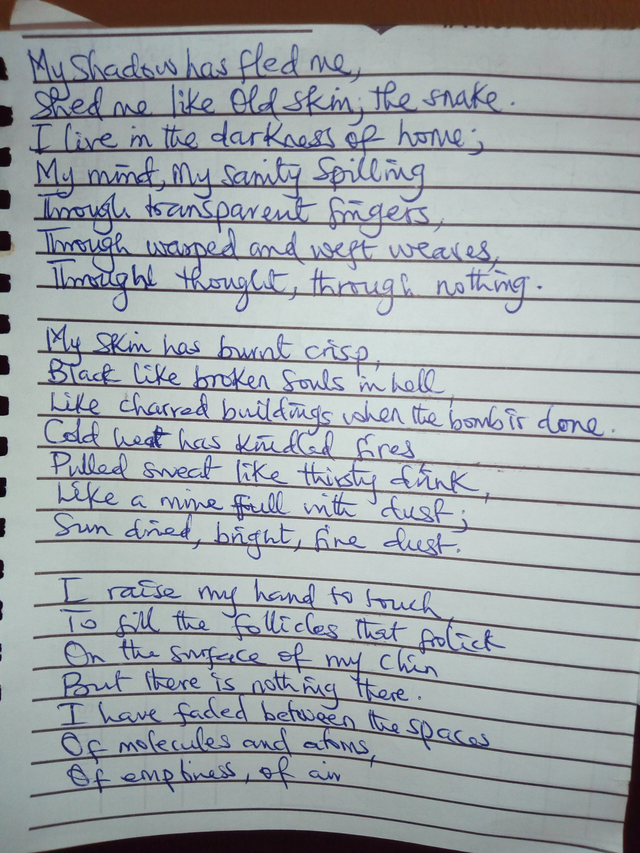 My Shadow has fled me,
Shed me like Old skin; the snake.
I live in the darkness of home;
My mind, My sanity Spilling
Through transparent fingers,
Through warped and weft weaves,
Throught thought, through nothing.
My skin has burnt crisp,
Black like broken Souls in hell,
Like charred buildings when the bomb is done.
Cold heat has kindled fires,
Pulled sweat like thirsty drink,
Like a mine full with dust;
Sun dried, bright, fine dust.
I raise my hand to touch,
To fill the follicles that frolick
On the surface of my Chin
But there is nothing there.
I have faded between the spaces
Of molecules and atoms,
Of emptiness, of air